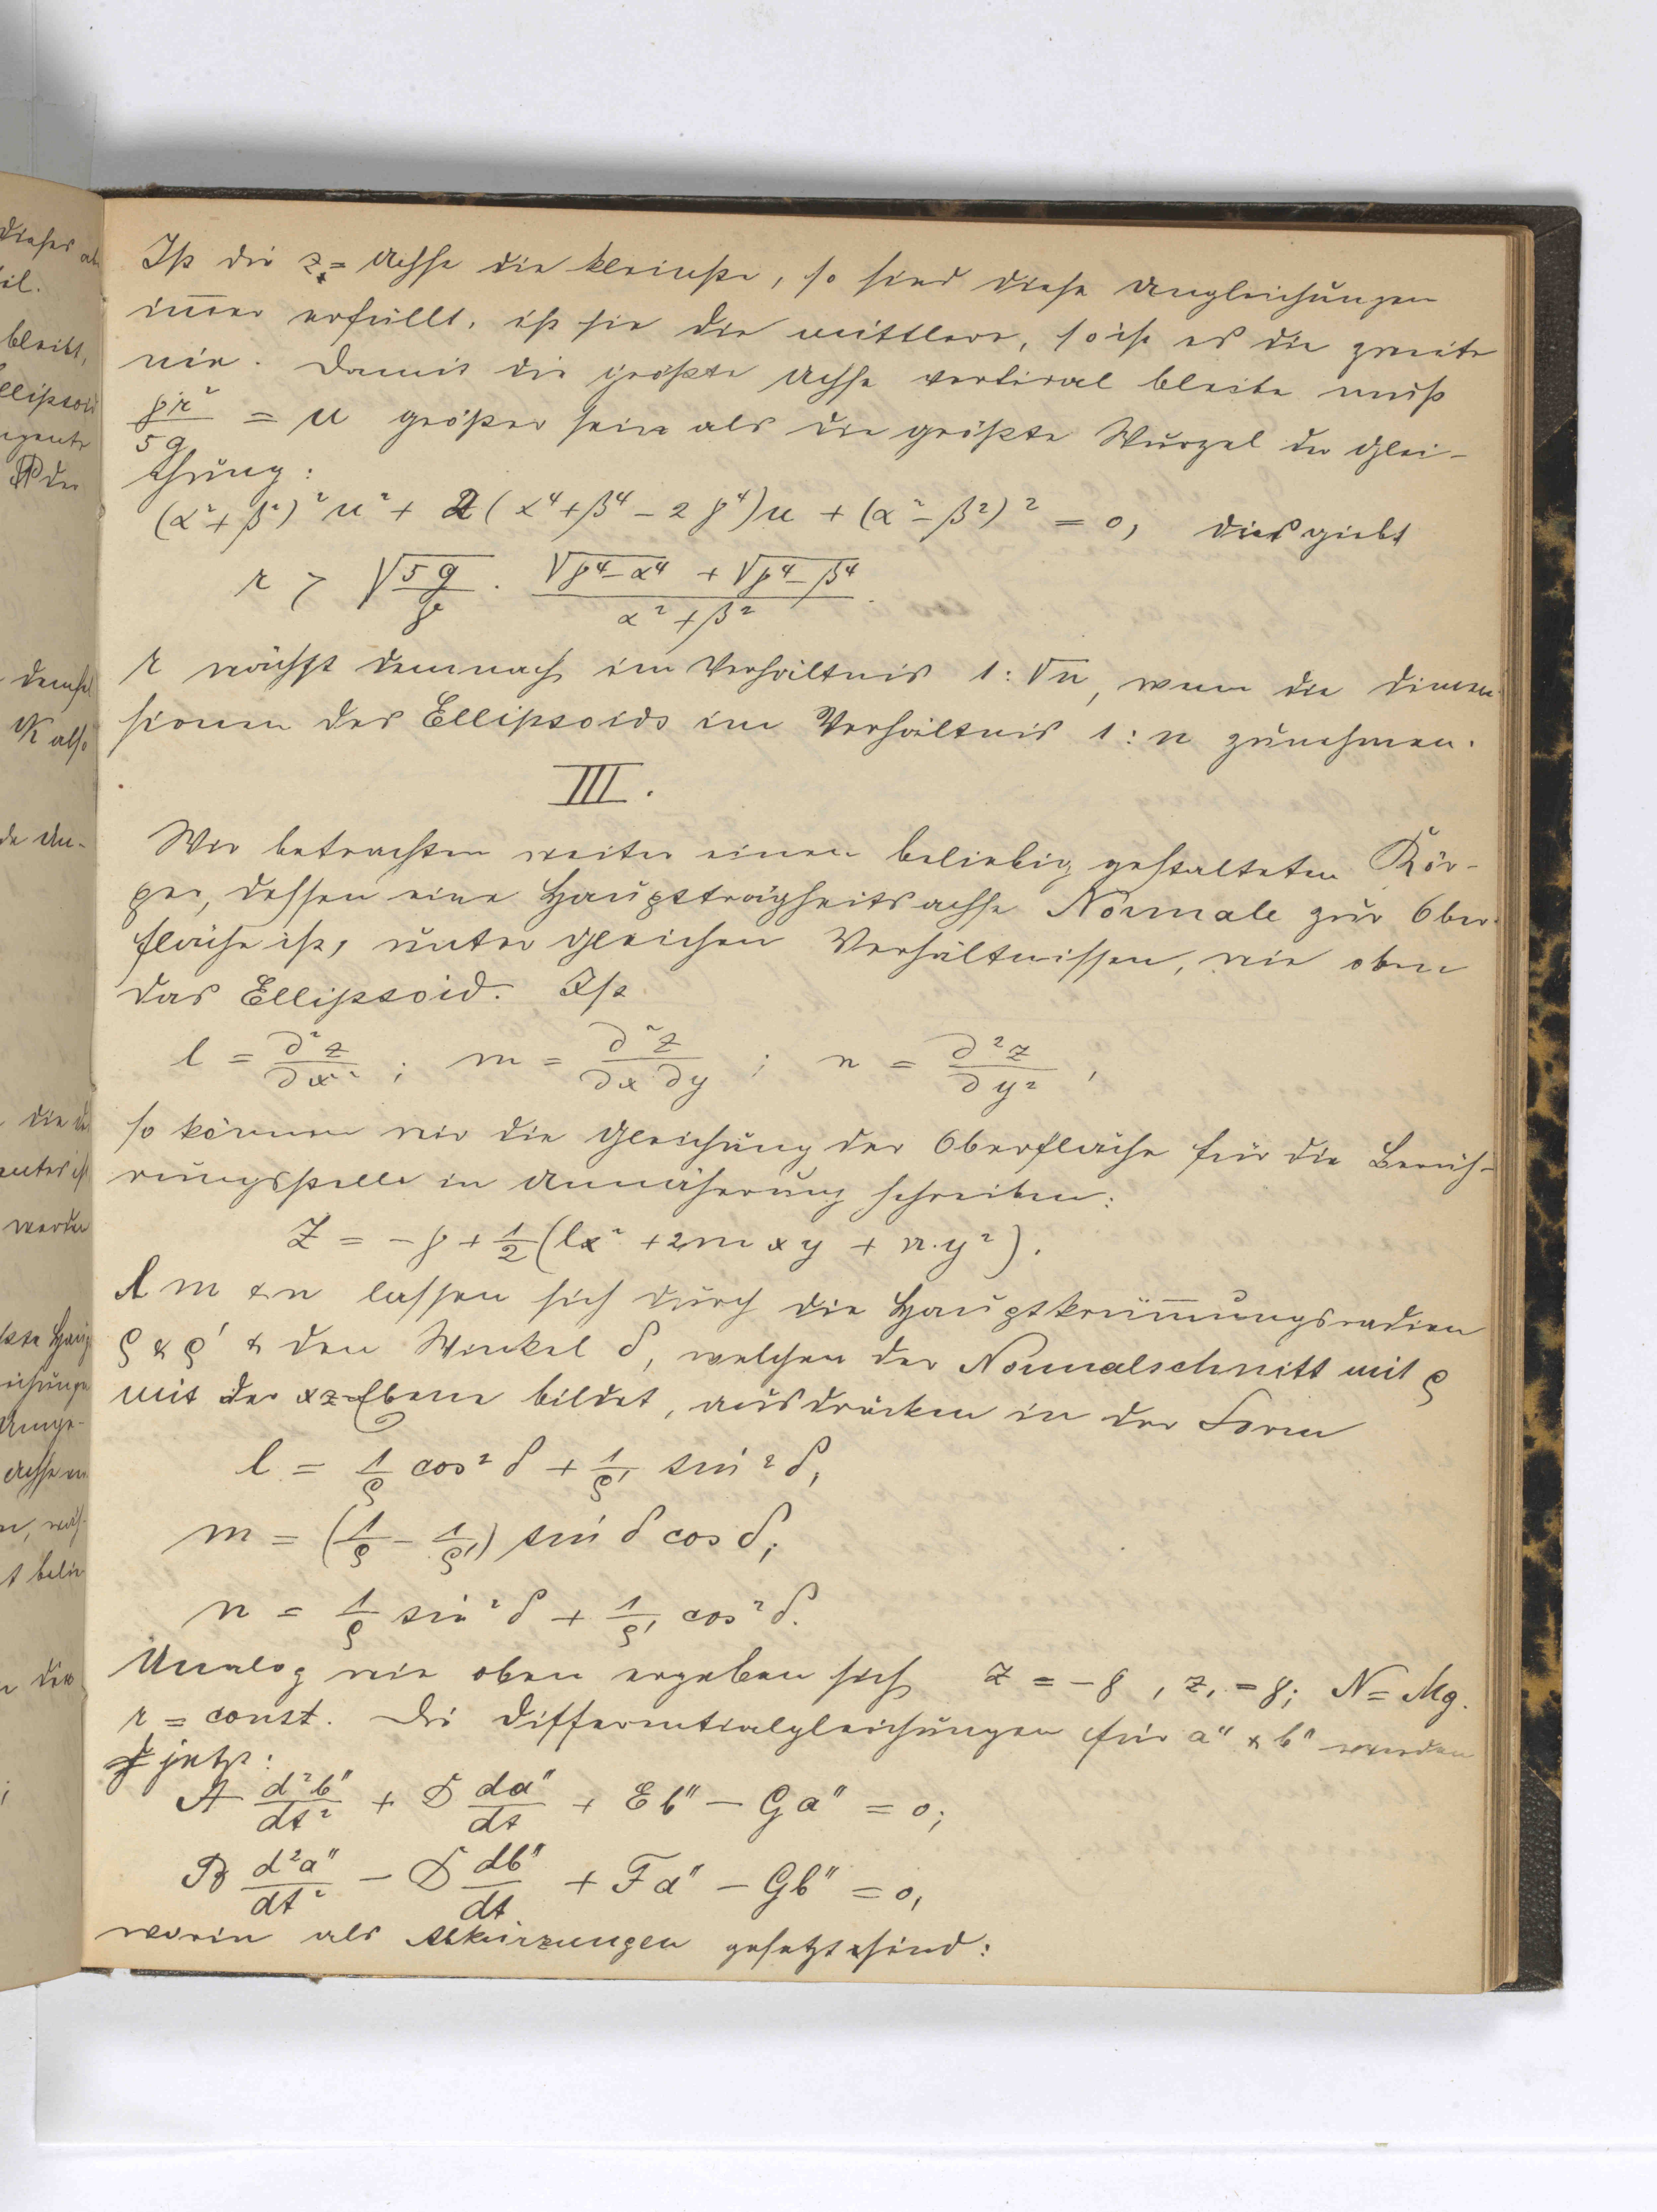 Ist die z = Achse die kleinste, so sind diese Ungleichungen
im̅er erfüllt, ist sie die mittlere, so ist es die zweite
nie. Damit die größte Achse vertical bleibe muß
γr²/5g = u größer sein als die größte Wurzel der Glei-
chung:
(α²+β²)²u² + 2(α⁴+β⁴−2γ⁴)u + (α²−β²)² = 0, dies giebt
r > √(5g/γ) · (√(γ⁴−α⁴) + √(γ⁴−β⁴))/(α²+β²).
r wächst demnach im Verhältnis 1:√n, wenn die Dimen-
sionen des Ellipsoids im Verhältnis 1:n zunehmen.
III.
Wir betrachten weiter einen beliebig gestalteten Kör-
per, dessen eine Hauptträgheitsachse Normale zur Ober-
fläche ist, unter gleichen Verhältnissen, wie oben
das Ellipsoid. Ist
l = ∂²z/∂x² ; m = ∂²z/∂x∂y ; n = ∂²z/∂y² ,
so können wir die Gleichung der Oberfläche für die Berüh-
rungsstelle in Annäherung schreiben:
z = −γ + ½(lx² + 2mxy + n.y²).
l m & n lassen sich durch die Hauptkrüm̅ungsradien
ρ & ρ' & den Winkel δ, welchen der Normalschnitt mit ρ
mit der xz-Ebene bildet, ausdrücken in der Form
l = 1/ρ cos²δ + 1/ρ' sin²δ,
m = (1/ρ − 1/ρ') sin δ cos δ,
n = 1/ρ sin²δ + 1/ρ' cos²δ.
Analog wie oben ergeben sich z = −γ , z, = γ; N = Mg.
r = const. Die Differentialgleichungen für a" & b" werden
jetzt:
A d²b"/dt² + D da"/dt + Eb" − Ga" = 0;
B d²a"/dt² − D db"/dt + Fa" − Gb" = 0,
worin als Abkürzungen gesetzt sind:
dieses
bleibt,
der
demsel
K also
de Un-
die
werde
Haup
Unge-
Achse